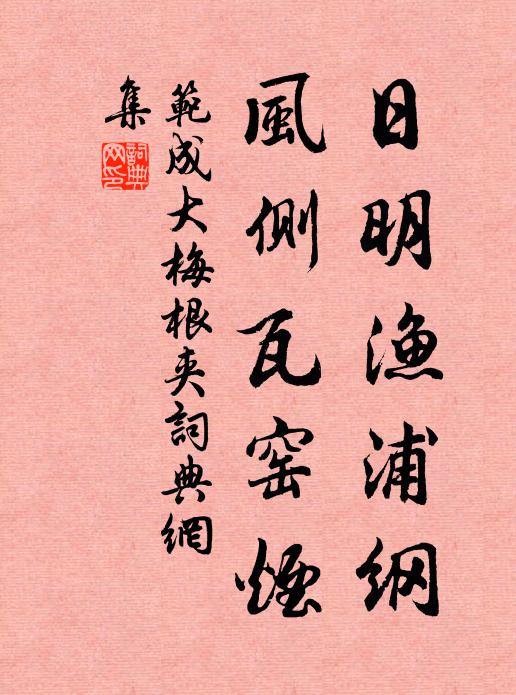 日明漁浦網
風側瓦窑煙
範成大梅根夹詞典網
集
詞典
网印